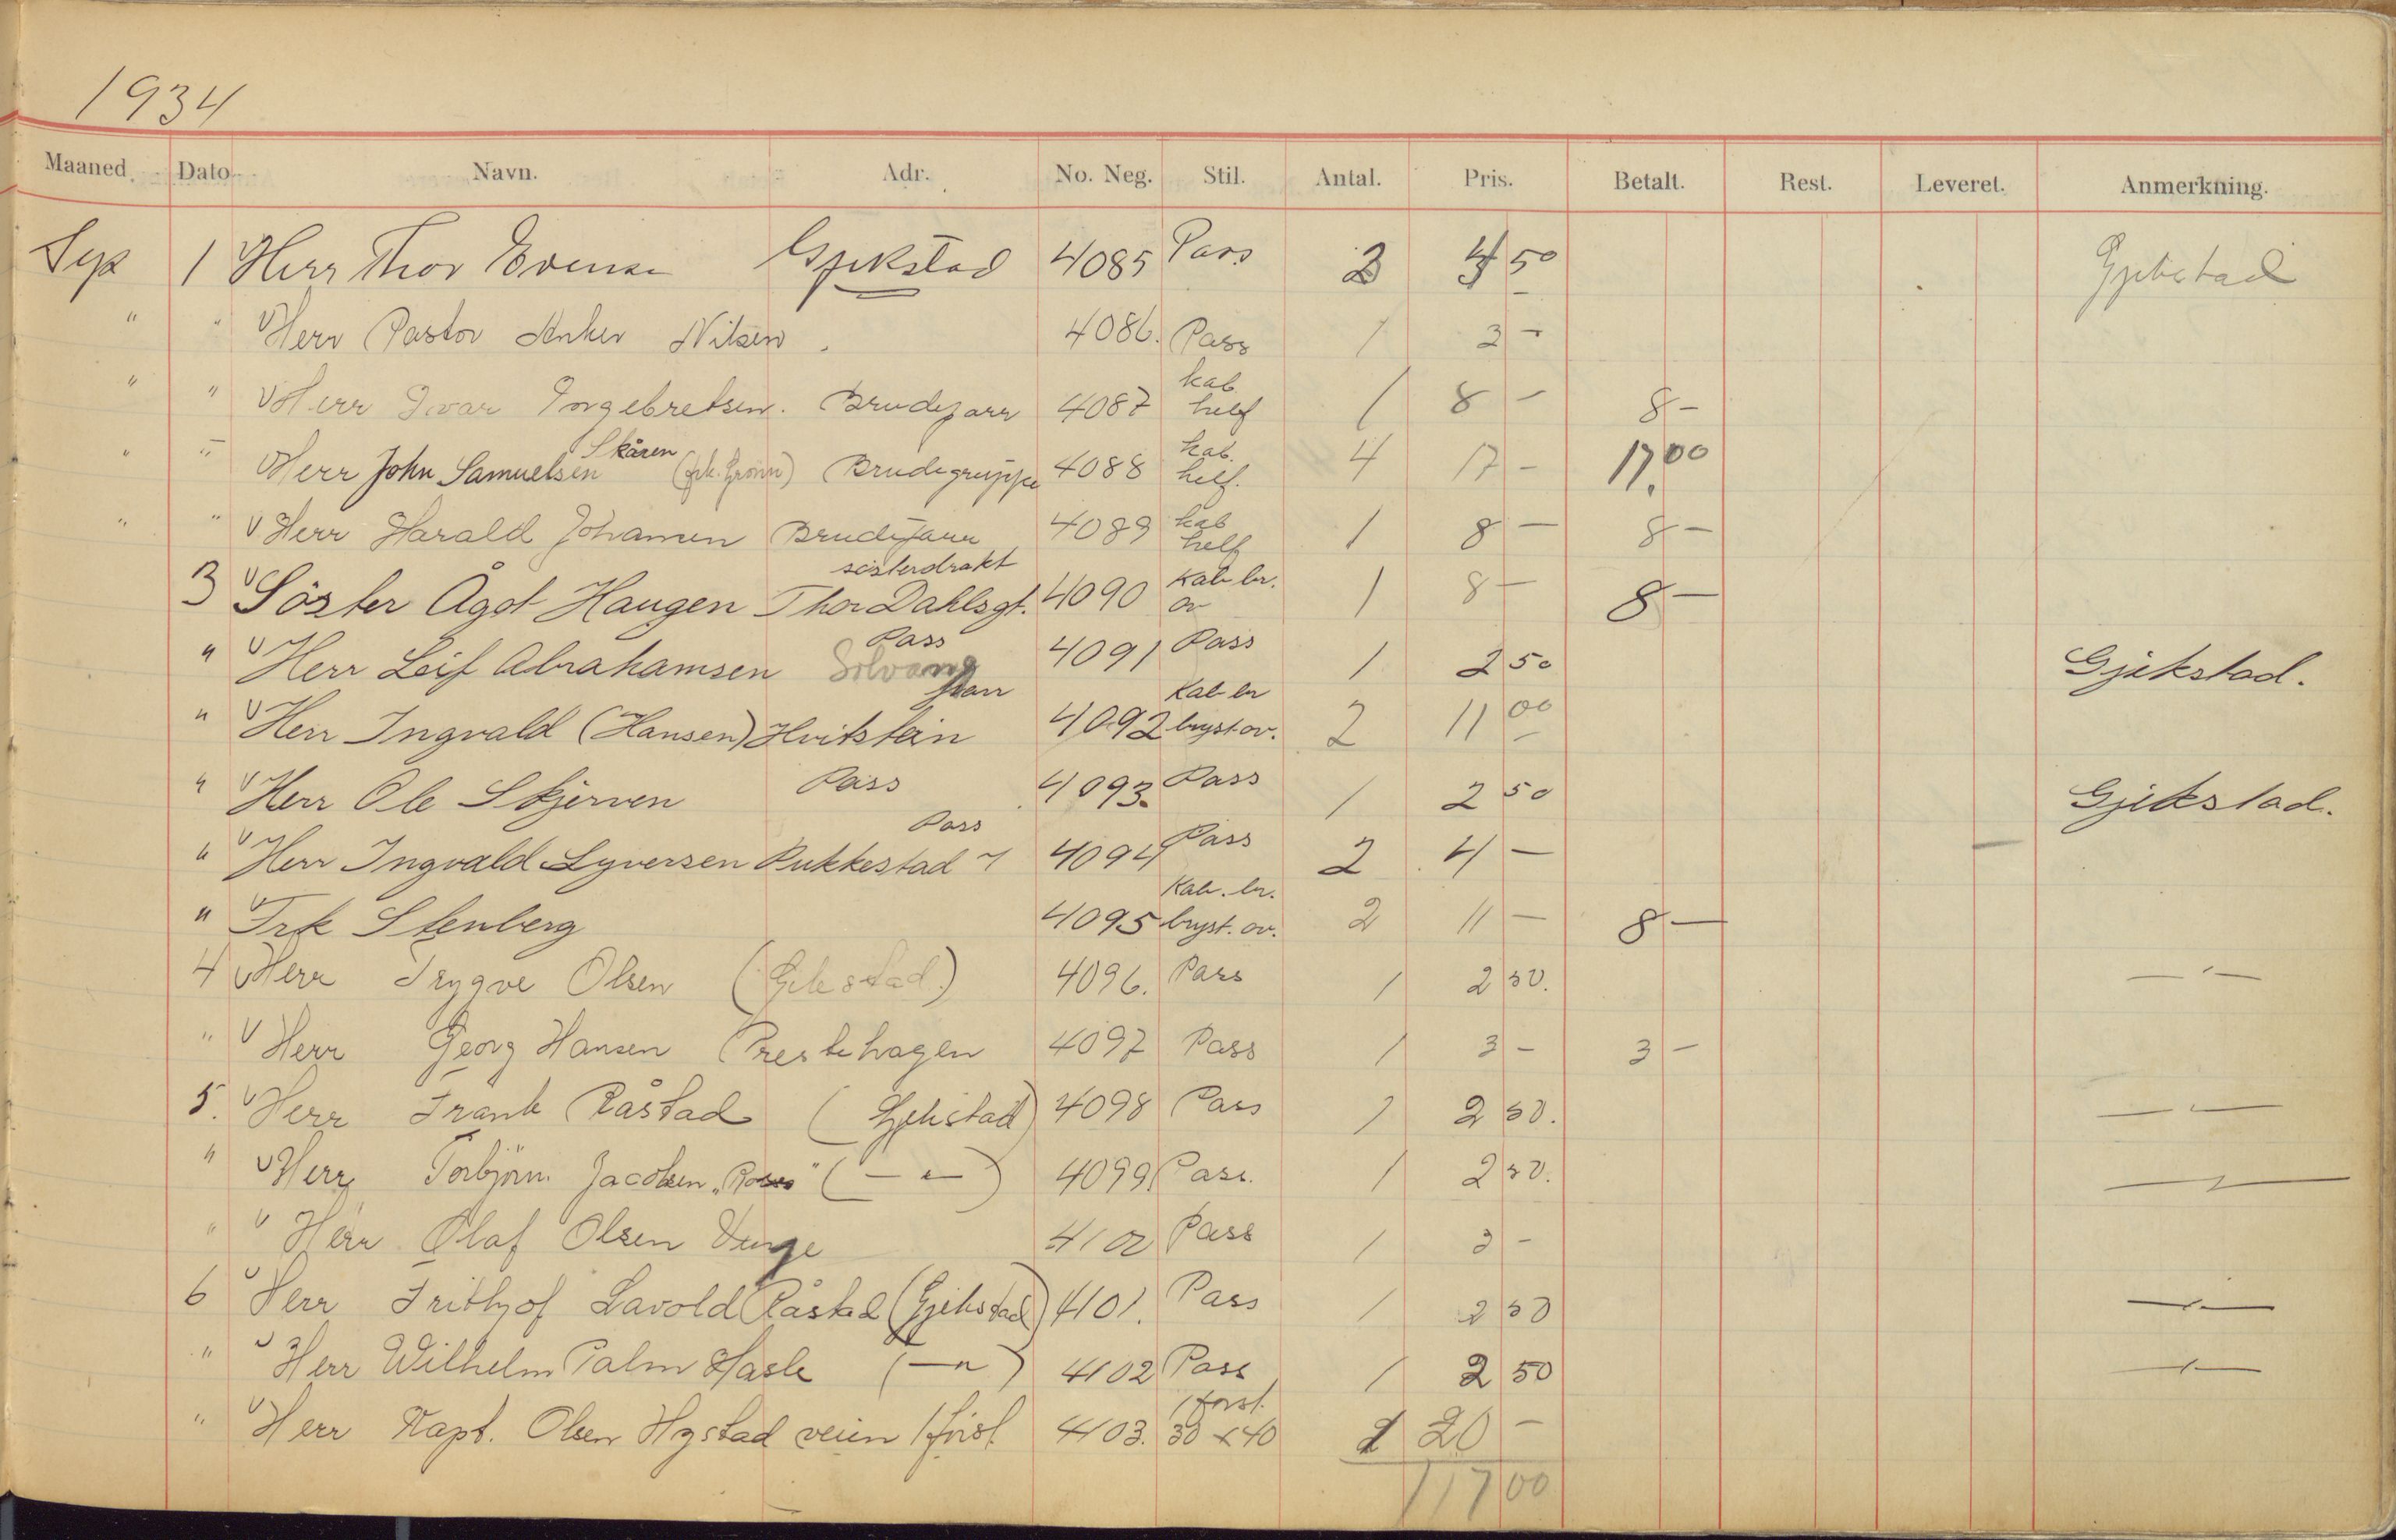 1934
Maaned. Dato Navn. Adr. No. Neg. Stil. Antal. Pris. Betalt. Rest. Leveret. Anmerkning.
Sep 1 Herr Thor Evensen Gjekstad 4085 Pass 50 Gjekstad
" " V Herr Pastor Anker Nilsen. 4086. Pass 1 3 -
" " V Herr Ivar Ingebretsen. Brudeparr 4087 kab helf 1 8 - 8 -
" " V Herr John Samuelsen Skåren (frk. Grönn) Brudegruppe 4088 kab. helf. 4 17 - 17.00
" " V Herr Harald Johansen Brudeparr 4089 kab helf 1 8 - 8 -
3 V Söster Ågot Haugen søsterdrakt Thor Dahlsgt. 4090 Kab br. ov 1 8 - 8 -
" V Herr Leif Abrahamsen Pass Solvang 4091 Pass 1 2 50 Gjekstad.
" V Herr Ingvald (Hansen) Hvitstein parr 4092 Kab br bryst ov. 2 11 00
" V Herr Ole Skjerven Pass 4093. Pass 1 2 50 Gjekstad.
" V Herr Ingvald Syversen Pukkestad Pass 4094 Pass 2 4 -
" V Frk Stenberg 4095 Kab. br. bryst. ov. 2 11 - 8 -
4 V Herr Trygve Olsen (Gjekstad.) 4096. Pass 1 2 50. — " —
" V Herr Georg Hansen Prestehagen 4097 Pass 1 3 - 3 -
5. V Herr Frank Råstad (Gjekstad) 4098 Pass 1 2 50. — " —
" V Herr Torbjörn Jacobsen (— " —) 4099. Pass. 1 2 50. — " —
" V Herr Olaf Olsen Virge 4100 Pass 1 3 -
6 V Herr Frithjof Lavold Råstad (Gjekstad) 4101. Pass 1 2 50 — " —
" V Herr Wilhelm Palm Hasle (— " —) 4102 Pass 1 2 50 — " —
" V Herr Kapt. Olsen Hystad veien 1 forst. 4103. 1 forst. 30 x 40 1 20 -
117 00